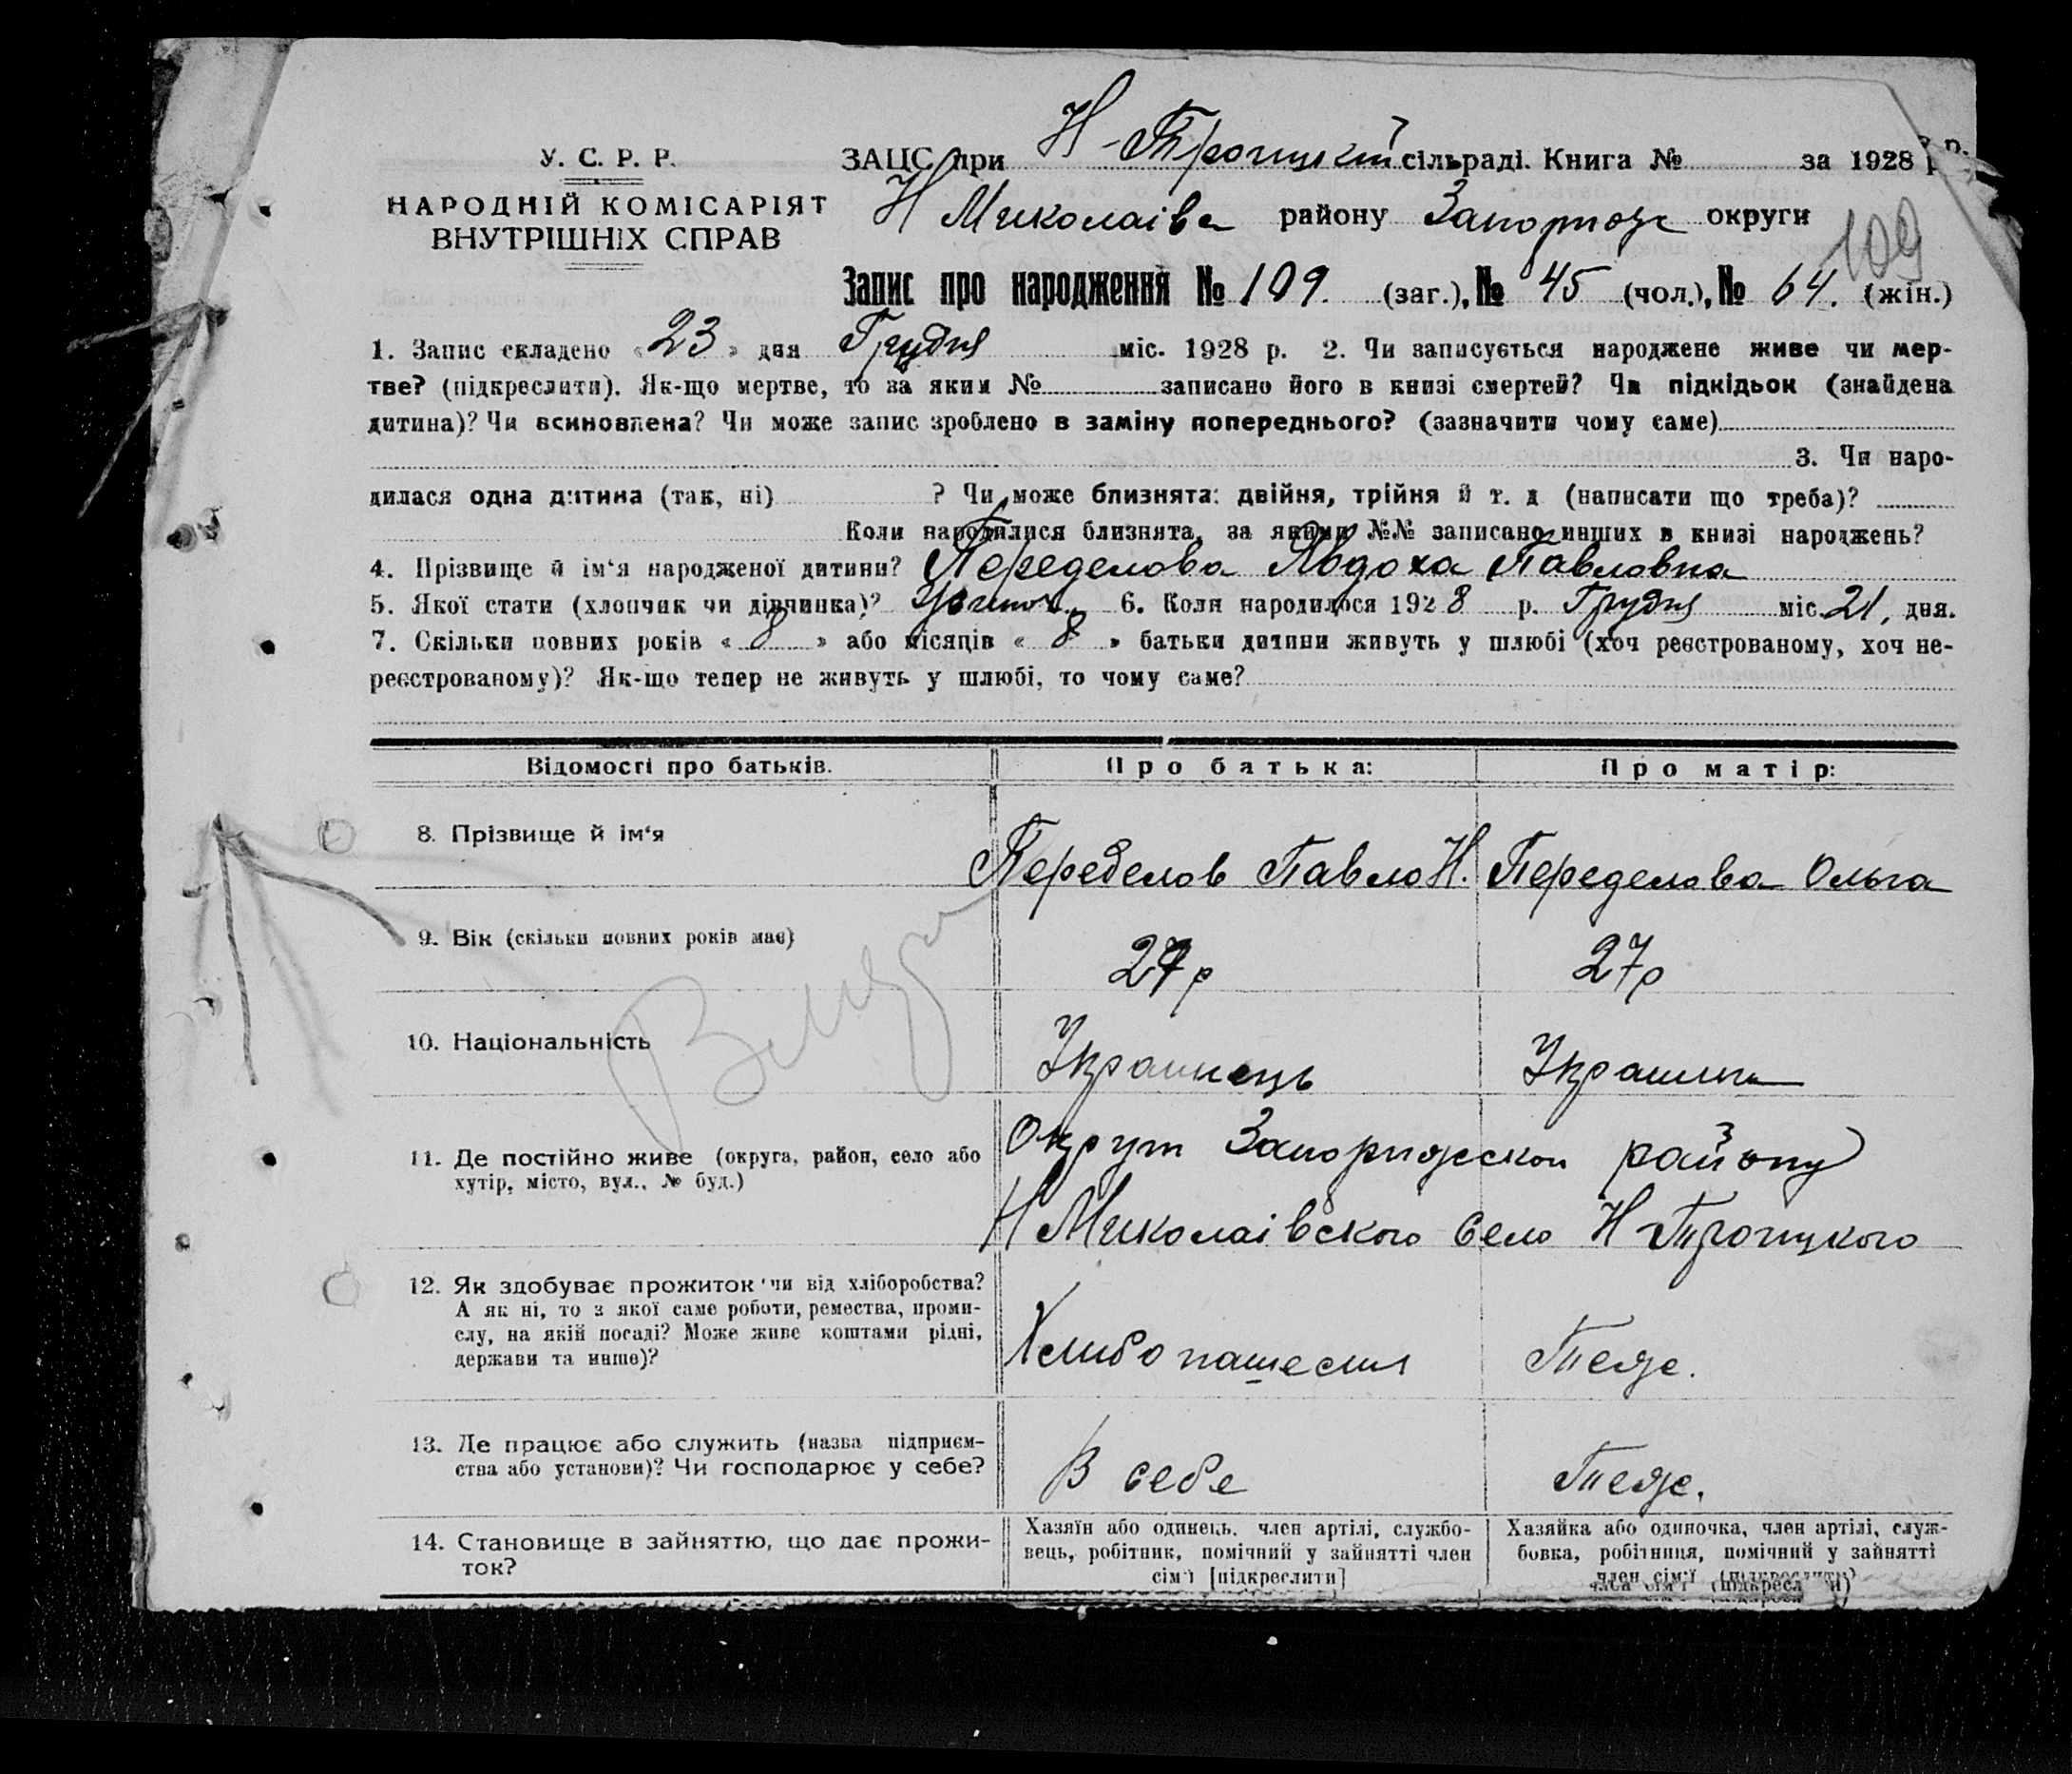 У. С. Р. Р.
НАРОДНІЙ КОМІСАРІЯТ
ВНУТРІШНІХ СПРАВ
ЗАЦС при Н-Троицкій сільраді. Книга № за 1928 р.
Н Миколаівс району Запориж округи
109
Запис про народження № 109. (заг.), № 45 (чол.), № 64. (жін.)
1. Запис складено « 23 » дня Грудня міс. 1928 р. 2. Чи записується народжене живе чи мер-
тве? (підкреслити). Як-що мертве, то за яким № записано його в книзі смертей? Чи підкідьок (знайдена
дитина)? Чи всиновлена? Чи може запис зроблено в заміну попереднього? (зазначити чому саме)
3. Чи наро-
дилася одна дитина (так, ні) ? Чи може близнята: двійня, трійня й т. д (написати що треба)?
Коли народилися близнята, за якими №№ записано инших в книзі народжень?
4. Прізвище й ім‘я народженої дитини? Переделова Явдоха Павловна
5. Якої статі (хлопчик чи дівчинка)? 6. Коли народилося 1928 р. Грудня міс. 21, дня.
7. Скільки повних років « 8 » або місяців « 8 » батьки дитини живуть у шлюбі (хоч реєстрованому, хоч не-
реєстрованому)? Як-що тепер не живуть у шлюбі, то чому саме?
Відомості про батьків. Про батька: Про матір:
8. Прізвище й ім‘я Переделов Павло Н. Переделова Ольга
9. Вік (скільки повних років має) 27р 27р
10. Національність Украинець Украинка
11. Де постійно живе (округа, район, село або
хутір, місто, вул., № буд.)
Округи Запорижскои району
Н Миколаівского Село Н Троицкого
12. Як здобуває прожиток чи від хліборобства?
А як ні, то з якої саме роботи, ремества, проми-
слу, на якій посаді? Може живе коштами рідні,
держави та инше)?
Теже.
13. Де працює або служить (назва підприєм-
ства або установи)? Чи господарює у себе?
В себе Теже.
14. Становище в зайняттю, що дає прожи-
ток?
Хазяїн або одинець, член артілі, службо-
вець, робітник, помічний у зайнятті член
сім‘ї [підкреслити]
Хазяйка або одиночка, член артілі, служ-
бовка, робітниця, помічний у зайнятті
член сім‘ї (підкреслити)